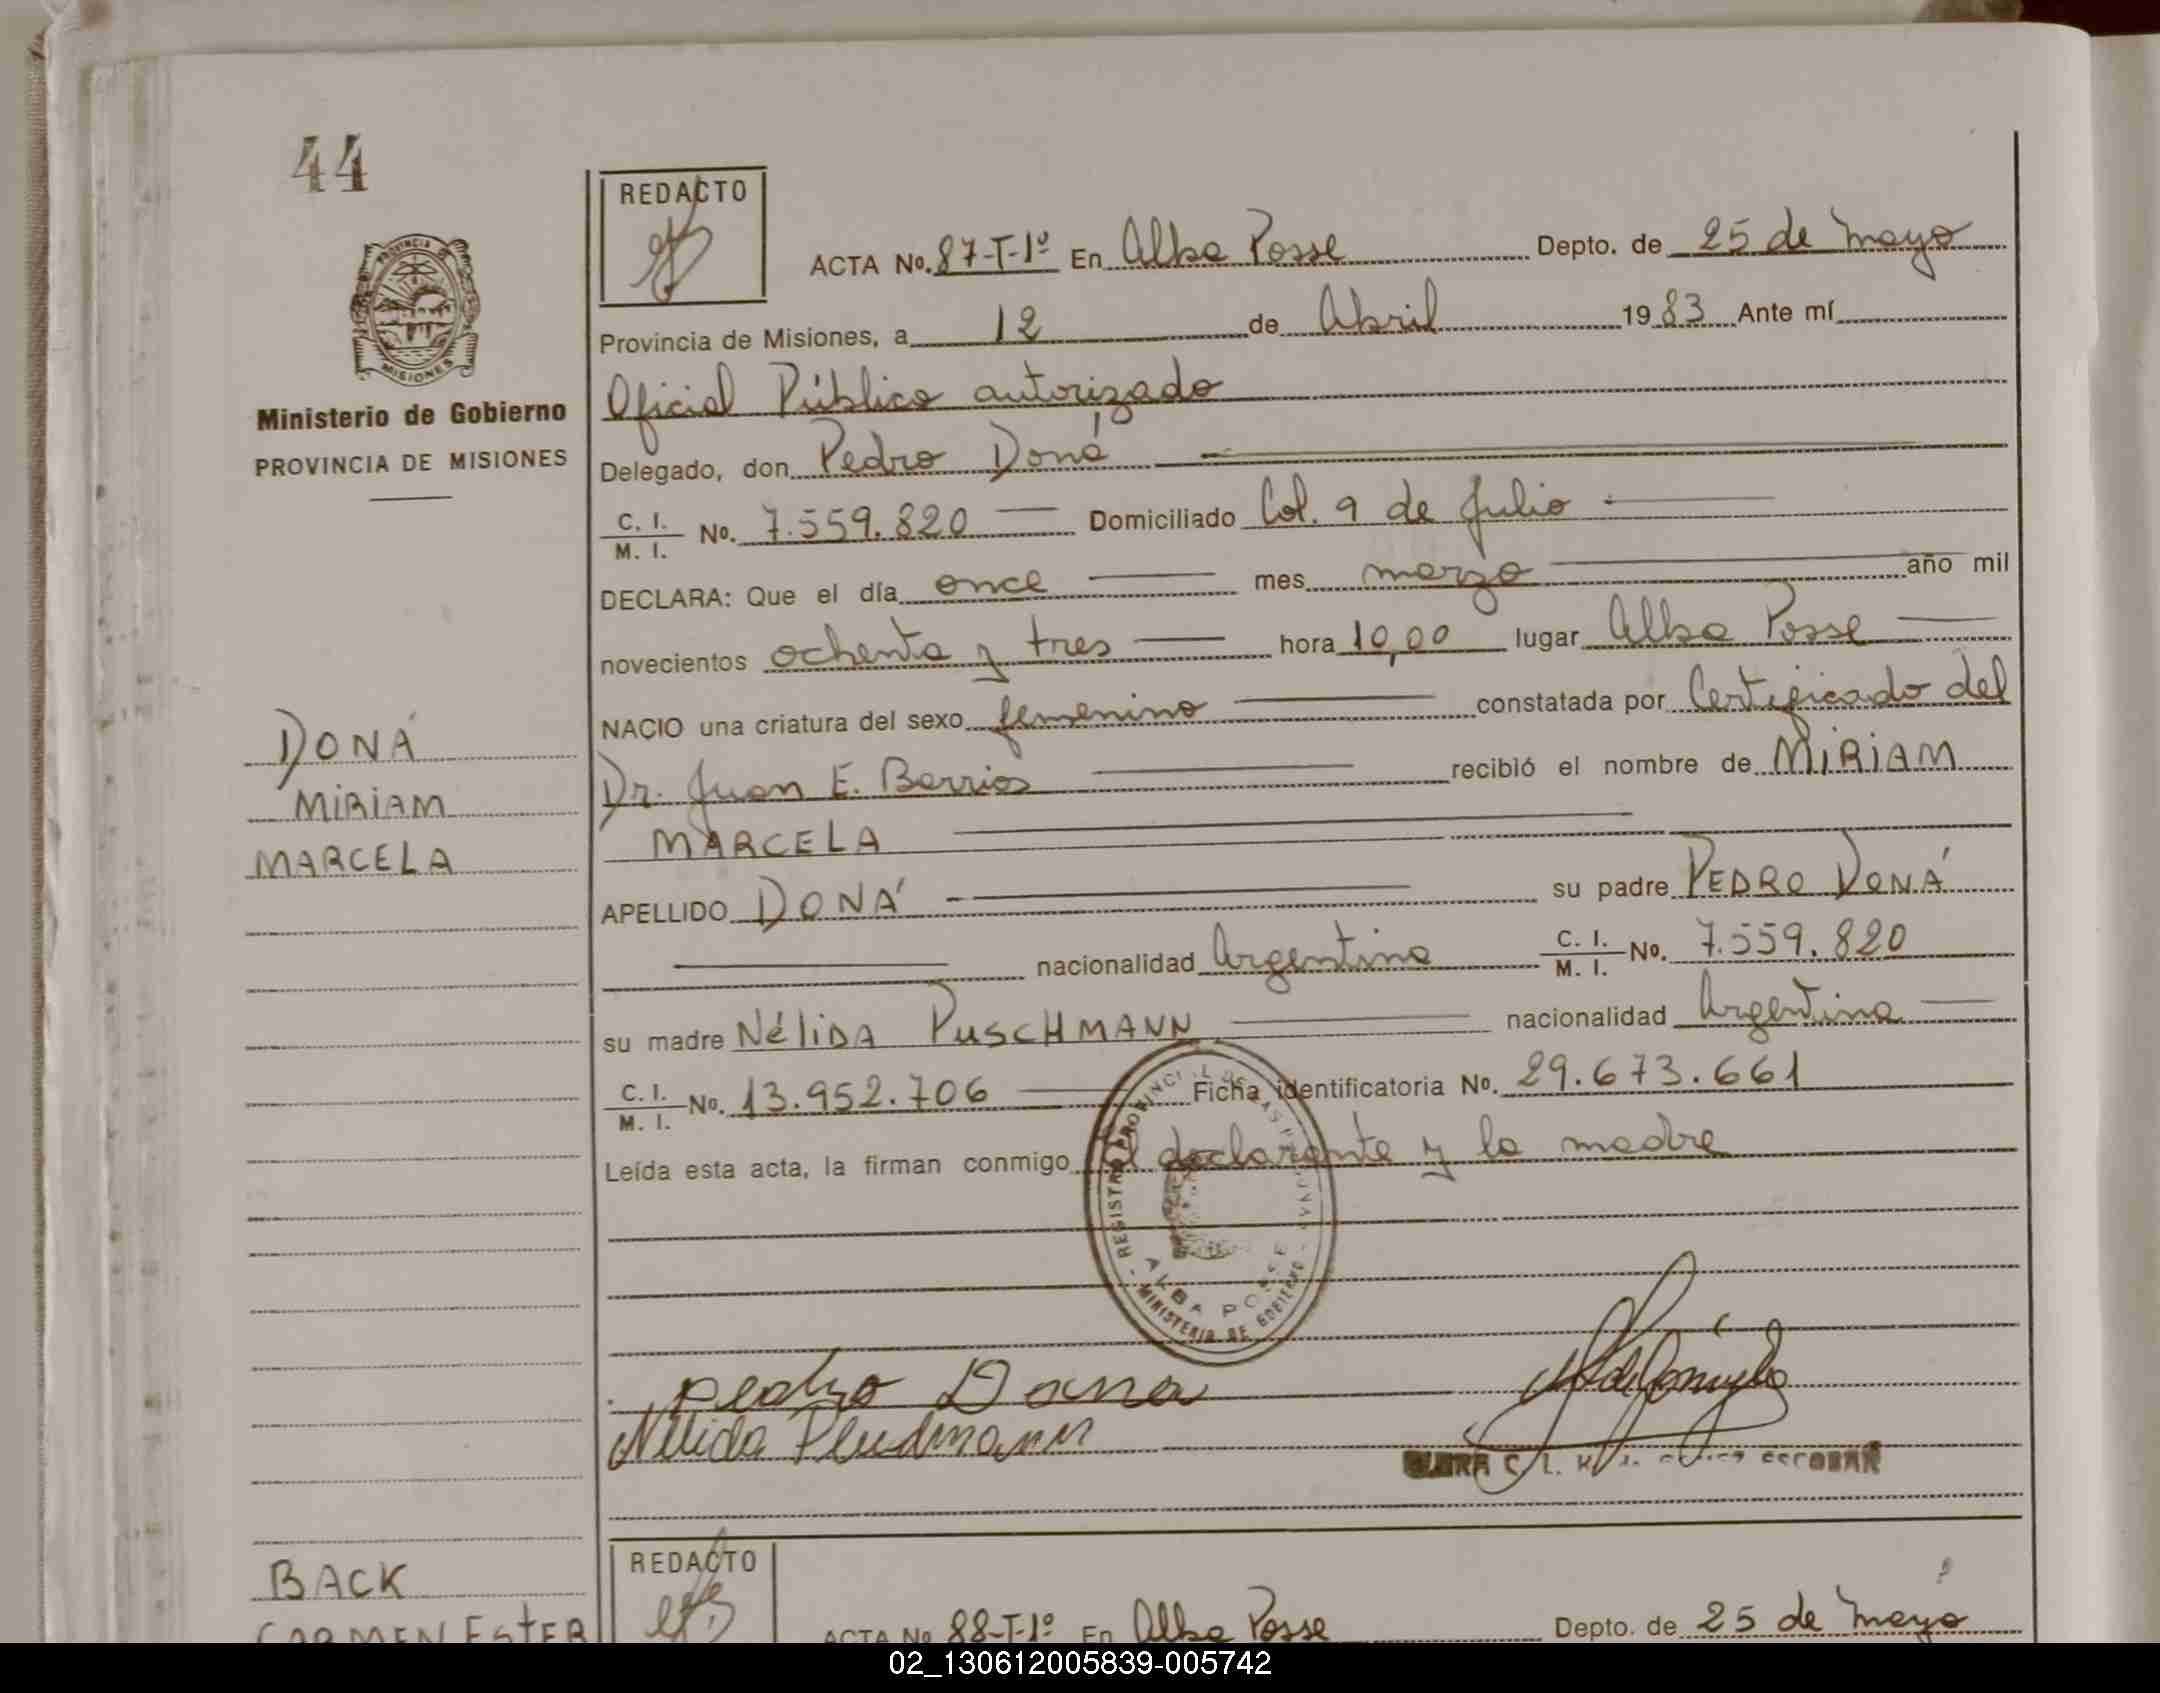 44
PROVINCIA DE
MISIONES
Ministerio de Gobierno
PROVINCIA DE MISIONES
REDACTO
ACTA No. 87-T-1º En Alba Posse Depto. de 25 de Mayo
Provincia de Misiones, a 12 de Abril 1983 Ante mí
Oficial Público autorizado
Delegado, don Pedro Doná
C. I.
M. I. No. 7.559.820 Domiciliado Col. 9 de Julio
DECLARA: Que el día once mes marzo año mil
novecientos ochenta y tres hora 10,00 lugar Alba Posse
NACIO una criatura del sexo femenino constatada por Certificado del
Dr. Juan E. Barrios recibió el nombre de MIRIAM
MARCELA
APELLIDO DONÁ su padre PEDRO DONÁ
nacionalidad Argentina C. I.
M. I. No. 7.559.820
su madre NéLIDA PUSCHMANN nacionalidad Argentina
C. I.
M. I. No. 13.952.706 Ficha identificatoria No. 29.673.661
Leída esta acta, la firman conmigo el declarante y la madre
DONÁ
MIRIAM
MARCELA
REGISTRO PROVINCIAL DE LAS PERSONAS
ALBA POSSE
MINISTERIO DE GOBIERNO
pedro Dona
Nelida
ESCOBAR
BACK
CARMEN ESTER
REDACTO
ACTA No 88-T-1º En Alba Posse Depto. de 25 de Mayo
02_130612005839-005742